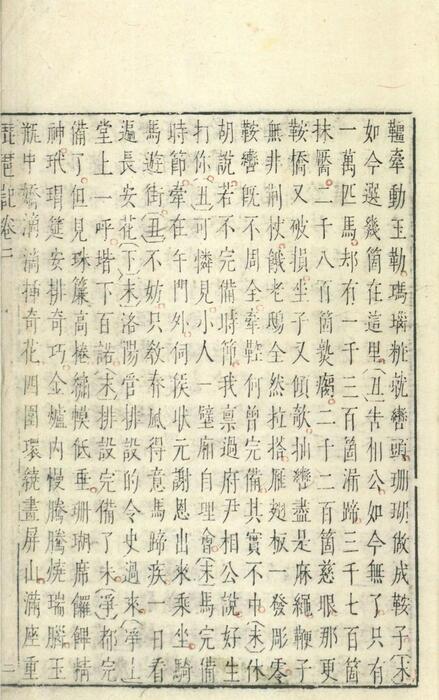 鞴牽動玉勒瑪瑙粧就轡頭珊瑚做成鞍子(末
如今選幾箇在這里(丑告相公如今無了只有
一萬匹馬却有一千三百箇漏蹄三千七百箇
抹靨二千八百箇熟瘸二千二百箇慈眼那更
鞍橋又破損坐子又傾欹抝轡盡是麻繩鞭子
無非荆杖餓老鴟全然拉搭雁翅板一發彫零
鞍轡既不周全牽鞚何曾完備其實不中(末休
胡說若不完備時節我禀過府尹相公說好生
打你(丑可憐見小人一壁廂自理會(末馬完備
時節牽在午門外伺候狀元謝恩出來乘坐騎
馬遊街(丑不妨只教春風得意馬蹄疾一日看
遍長安花(下(末洛陽管排設的令史過來(淨上
堂上一呼堦下百諾(末排設完備了未(淨都完
備了但見珠簾高捲繡幙低垂珊瑚席鞸精
神玳瑁筵安排奇巧金爐內慢騰騰燒瑞腦玉
瓶中嬌滴滴揷奇花四圍環繞畫屏山滿座重
琵琶記卷二